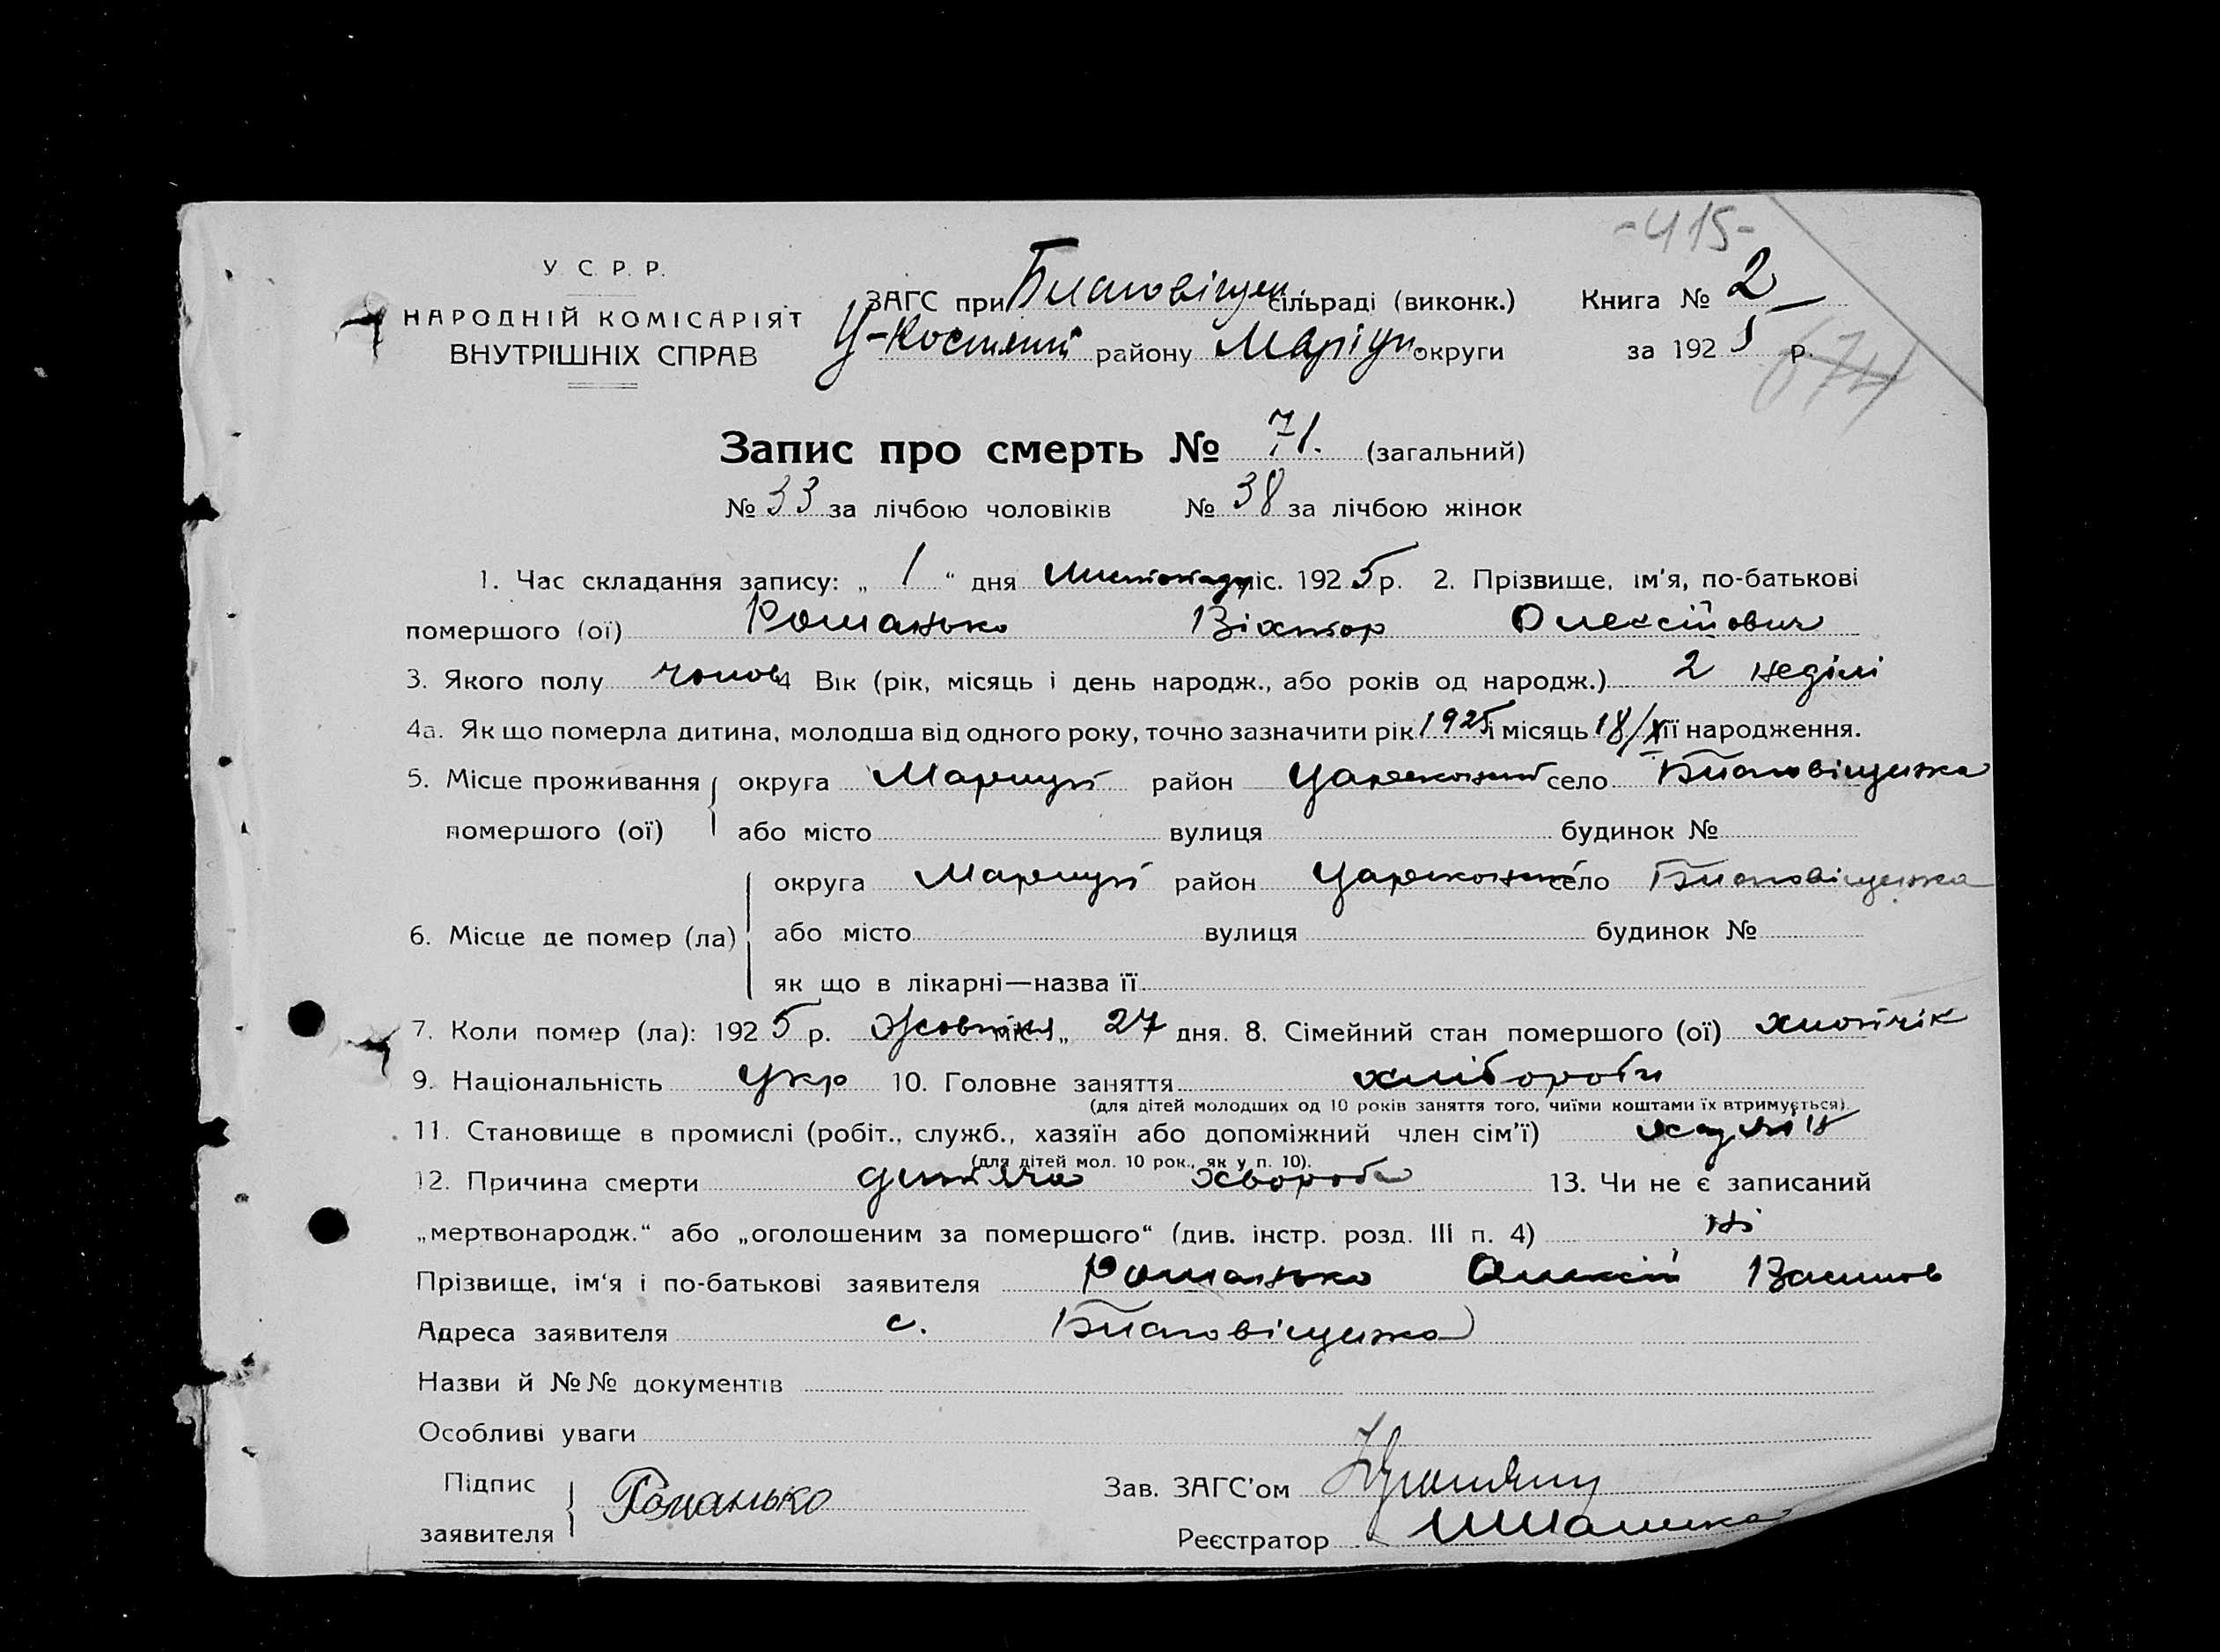 -415-
У. С. Р. Р.
НАРОДНІЙ КОМІСАРІЯТ
ВНУТРІШНІХ СПРАВ
ЗАГС при Благовіщен. сільраді (виконк.) Книга № 2
Ц-Костянт району Маріуп округи за 1925 р.
674
Запис про смерть № 71. (загальний)
№ 33 за лічбою чоловіків № 38 за лічбою жінок
1. Час складання запису: „ 1 “ дня Листопаду міс. 1925 р. 2. Прізвище, ім'я, по-батькові
помершого (ої) Романько Віктор Олексійович
3. Якого полу чолов 4 Вік (рік, місяць і день народж., або років од народж.) 2 неділі
4а. Як що померла дитина, молодша від одного року, точно зазначити рік 1925 і місяць 18/X її народження.
5. Місце проживання округа Маріуп район село Благовіщенка
помершого (ої) або місто вулиця будинок №
округа Маріуп район село Благовіщенка
6. Місце де помер (ла) або місто вулиця будинок №
як що в лікарні—назва її
7. Коли помер (ла): 1925 р. Жовтня міс. „ 27 дня. 8. Сімейний стан помершого (ої) хлопчік
9. Національність Укр 10. Головне заняття хлібороби
(для дітей молодших од 10 років заняття того, чиїми коштами їх втримується).
11. Становище в промислі (робіт., служб., хазяїн або допоміжний член сім'ї) хазяїн
(для дітей мол. 10 рок., як у п. 10).
12. Причина смерти дитяча хвороба 13. Чи не є записаний
„мертвонародж.“ або „оголошеним за помершого“ (див. інстр. розд. III п. 4) ні
Прізвище, ім'я і по-батькові заявителя Романько Олексій Васильов
Адреса заявителя с. Благовіщенка
Назви й №№ документів
Особливі уваги
Підпис
заявителя Романько
Зав. ЗАГС'ом
Реєстратор